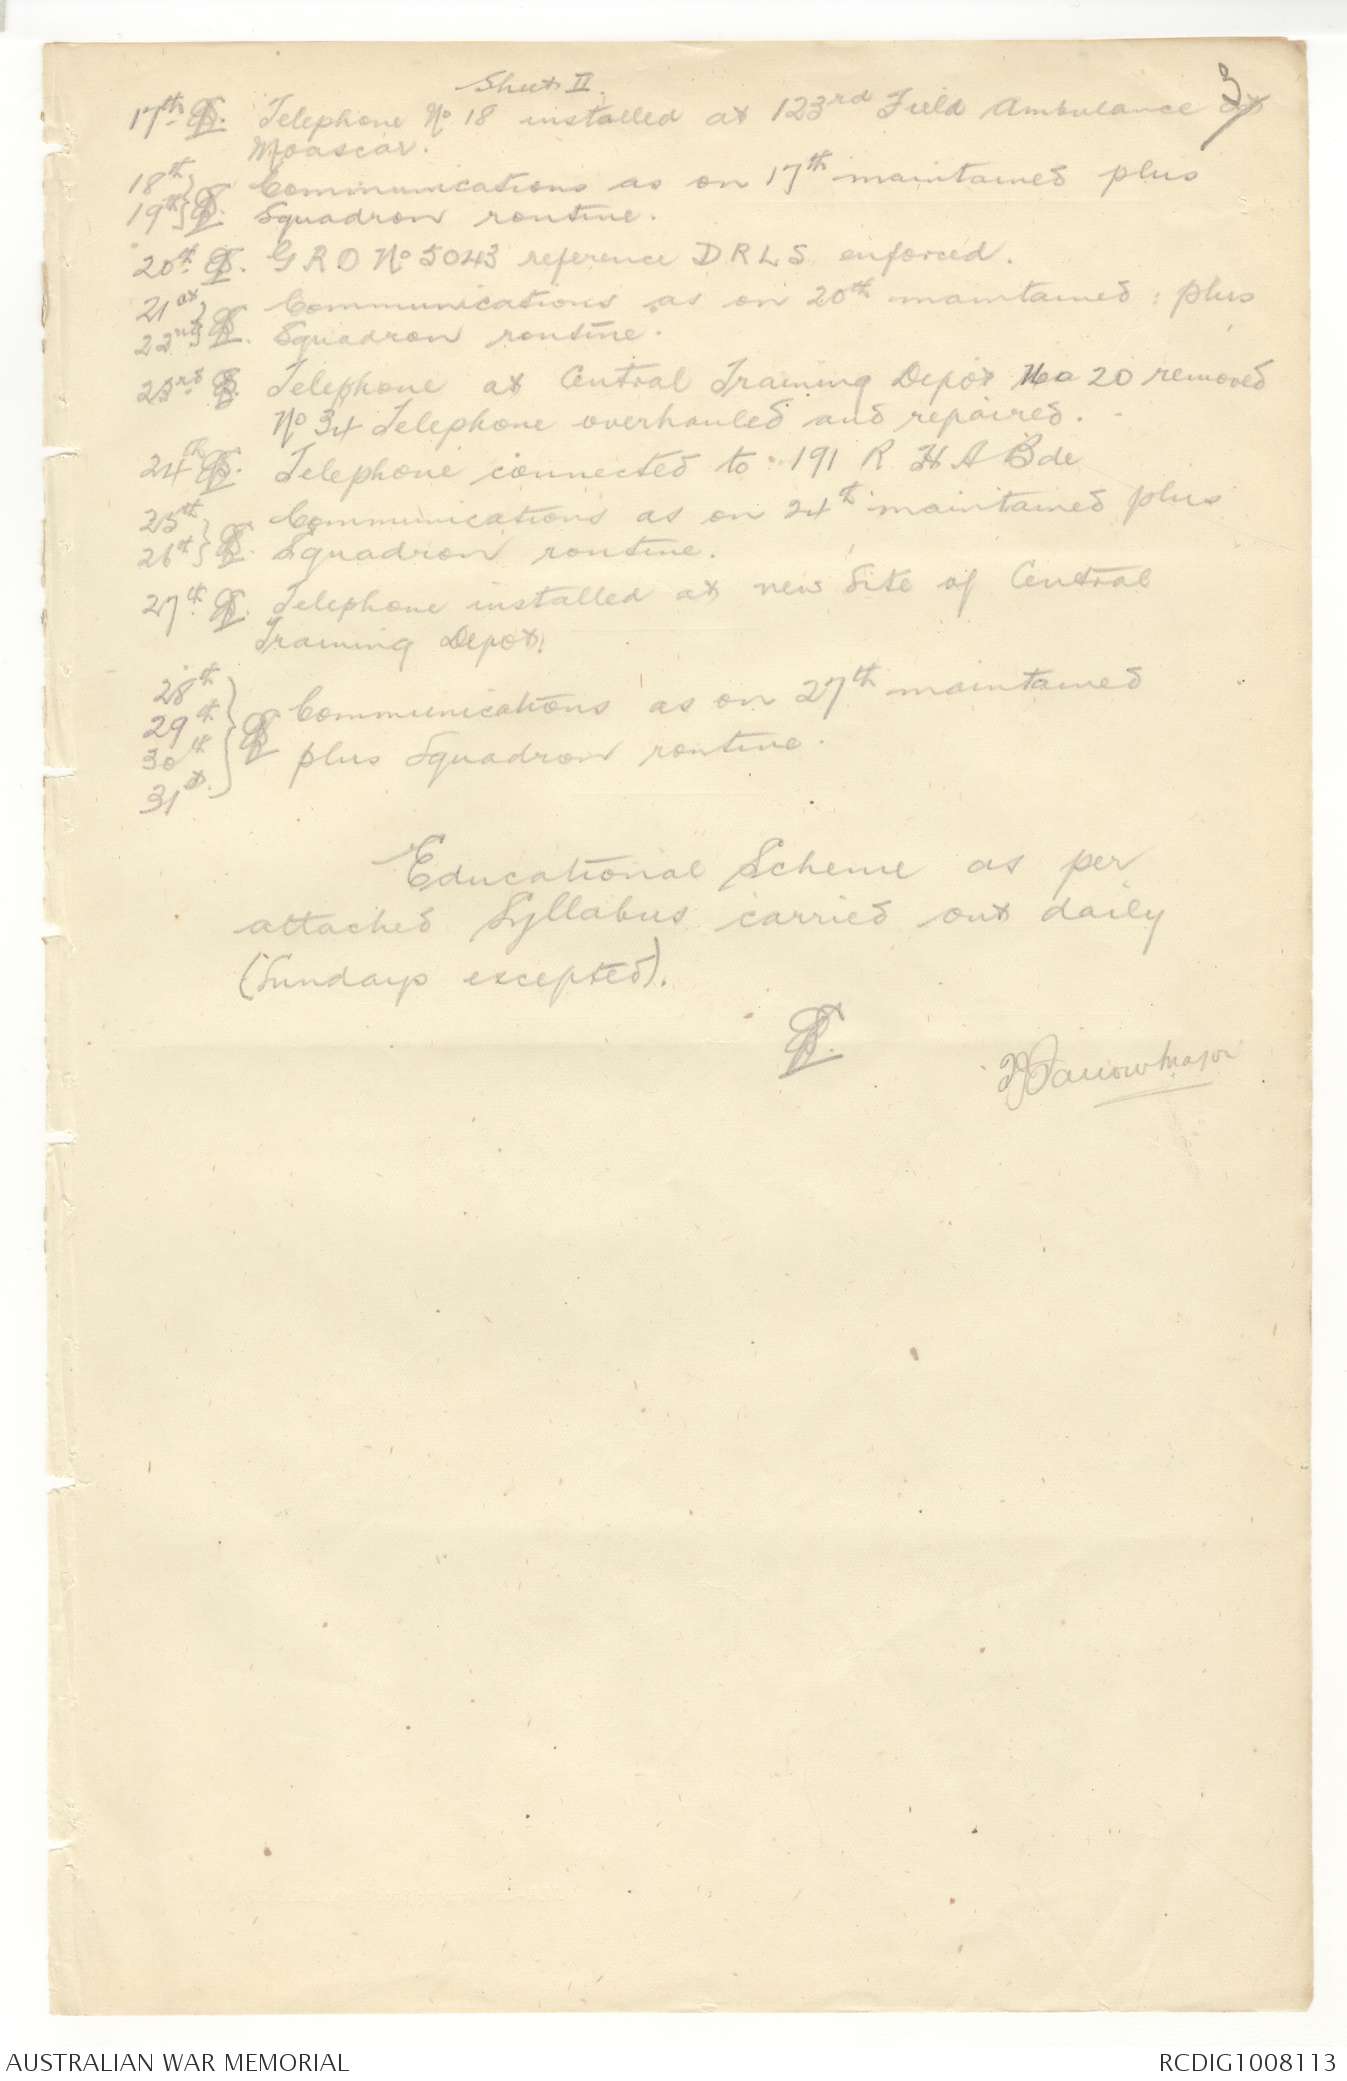 Sheet II.
3
17th. Telephone No 18 installed at 123rd Field Ambulance at
Moascar.
18th } Communications as on 17th maintained plus
19th } Squadron routine.
20th. G R O No 5043 reference D R L S enforced.
21st } Communications as on 20th maintained: plus
22nd } Squadron routine.
23rd. Telephone at Central Training Depot No 20 removed
No 34 Telephone overhauled and repaired.
24th. Telephone connected to 191 R H A Bde
25th } Communications as on 24th maintained plus
26th } Squadron routine.
27th. Telephone installed at new Site of Central
Training Depot.
28th
29th } Communications as on 27th maintained
30th } plus Squadron routine.
31st.
Educational Scheme as per
attached Syllabus carried out daily
(Sundays excepted).
Farrow Major
AUSTRALIAN WAR MEMORIAL
RCDIG1008113